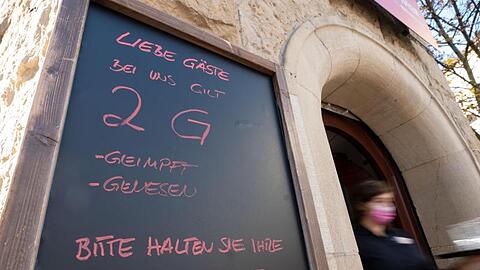 LIEBE GÄSTE
BEI UNS GILT
2 G
-GEIMPFT
-GENESEN
BITTE HALTEN SIE IHRE